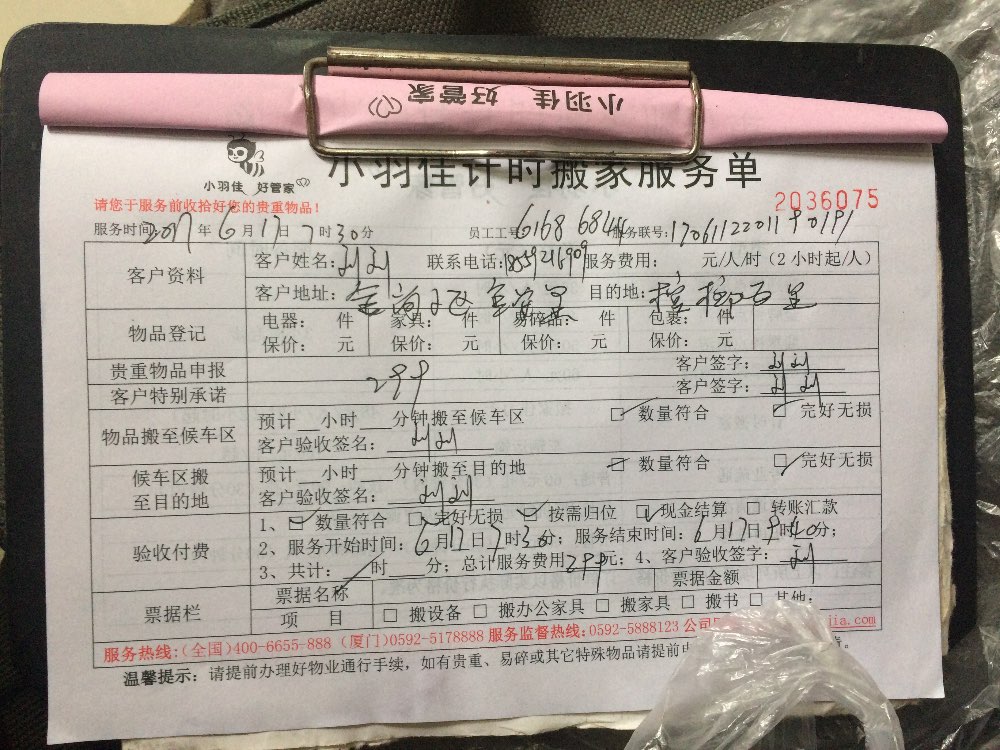 小羽佳 好管家
小羽佳计时搬家服务单
小羽佳 好管家
2036075
请您于服务前收拾好您的贵重物品！
服务时间: 2017年6月17日7时30分 员工工号: 6168 6844 服务联号:
客户资料 客户姓名: 联系电话: 18559216909 服务费用: 元/人/时（2小时起/人）
客户地址: 目的地:
物品登记 电器: 件 家具: 件 易碎品: 件 包裹: 件
保价: 元 保价: 元 保价: 元 保价: 元
贵重物品申报 客户签字:
客户特别承诺 299 客户签字:
物品搬至候车区 预计__小时___分钟搬至候车区 □ 数量符合 □ 完好无损
客户验收签名:
候车区搬至目的地 预计__小时___分钟搬至目的地 □ 数量符合 □ 完好无损
客户验收签名:
验收付费 1、□ 数量符合 □ 完好无损 □ 按需归位 □ 现金结算 □ 转账汇款
2、服务开始时间: 6月17日7时30分; 服务结束时间: 6月17日9时40分;
3、共计: 时 分; 总计服务费用299元; 4、客户验收签字:
票据栏 票据名称 票据金额
项 目 □ 搬设备 □ 搬办公家具 □ 搬家具 □ 搬书 □ 其他:
服务热线:(全国)400-6655-888 (厦门)0592-5178888 服务监督热线: 0592-5888123 公司 jia.com
温馨提示: 请提前办理好物业通行手续，如有贵重、易碎或其它特殊物品请提前